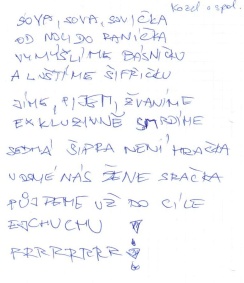 Kozel a spol.
SOVA, SOVA, SOVIČKA
OD NOCI DO RANÍČKA
VYMÝŠLÍME BÁSNIČKU
A LUŠTÍME ŠIFŘIČKU
JÍME, PIJEM, ŽVANÍME
EXKLUZIVNĚ SMRDÍME
SEDMÁ ŠIFRA NENÍ HRAČKA
V OSMÉ NÁS ŽENE SRAČKA
PŮJDEME UŽ DO CÍLE
EJCHUCHU